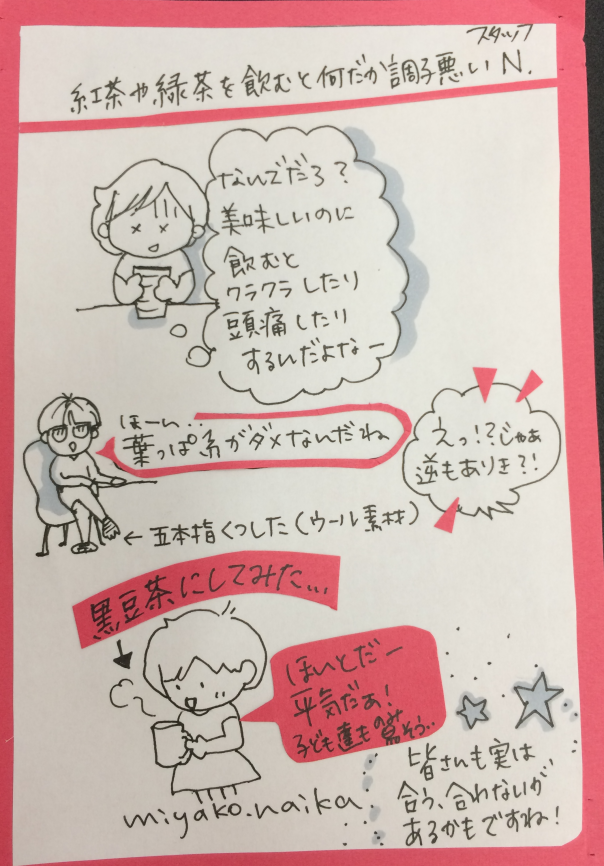 スタッフ
紅茶や緑茶を飲むと何だか調子悪いN.
なんでだろ?
美味しいのに
飲むと
クラクラしたり
頭痛したり
するんだよなー
ほーん..
葉っぱ系がダメなんだね
えっ!?じゃあ
逆もありき?!
←五本指くつした(ウール素材)
黒豆茶にしてみた...
ほいとだー
平気だぁ!
子ども達ものみ
そう..
皆さんも実は
合う、合わないが
あるかもですね!
miyako.naika